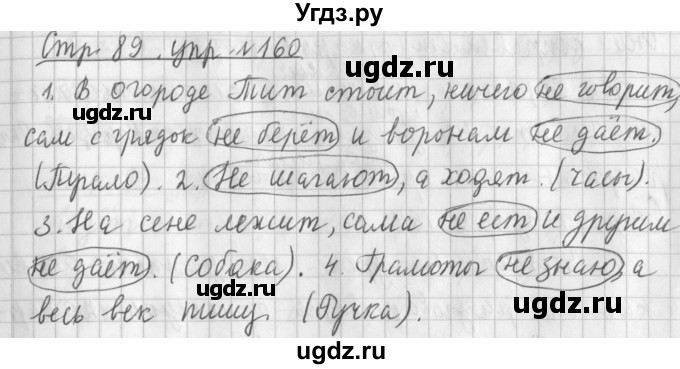 Угдз.ру
Стр. 89. упр № 160
ugdz.ru ugdz.ru
1. В огороде Тит стоит, ничего не говорит,
сам с грядок не берёт и воронам не даёт.
ugdz.ru
(Пугало). 2. Не шагают, а ходят. (Часы).
3. На сене лежит, сама не ест и другим
ugdz.ru ugdz.ru
не даёт. (Собака). 4. Грамоты не знаю, а
весь век пишу. (Ручка).
ugdz.ru
ugdz.ru